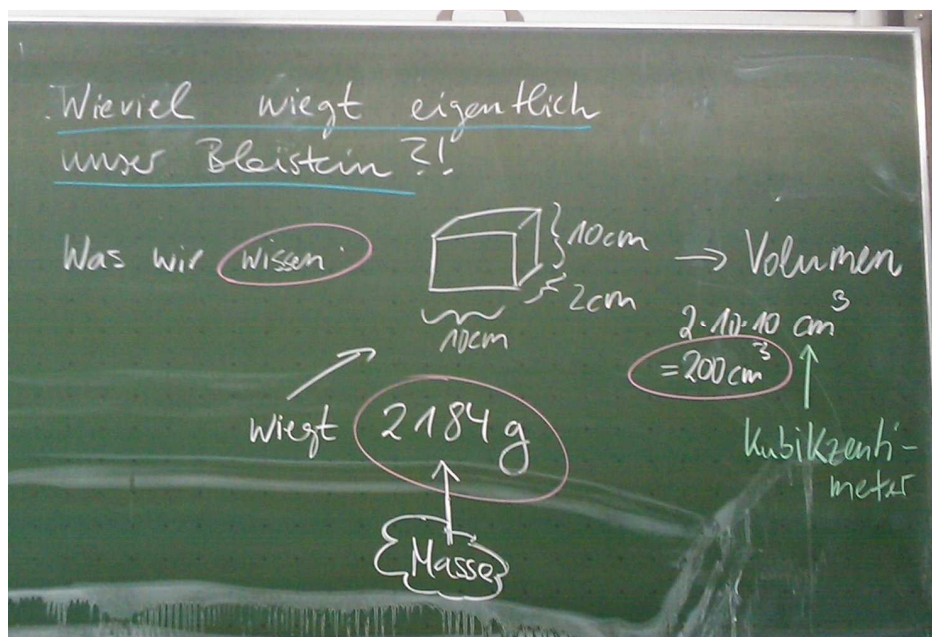 Wieviel wiegt eigentlich
unser Bleistein?!
Was wir wissen:
10cm
2cm
10cm
→ Volumen
2·10·10 cm³
=200cm³
Kubikzenti-
meter
wiegt 2184g
Masse